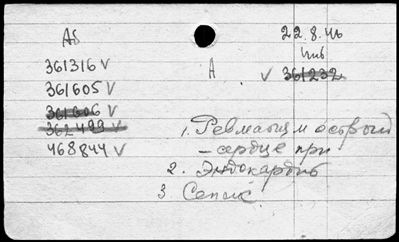 As
22.8.46
361316 V
A
V 361232
361605 V
361606 V
362499 V
468844 V
1. Ревматизм острый
– сердце при
2. Эндокардит
3. Сепсис